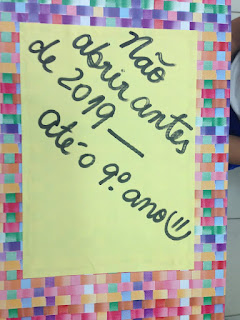 Não
abrir antes
de 2019 —
até o 9º. ano